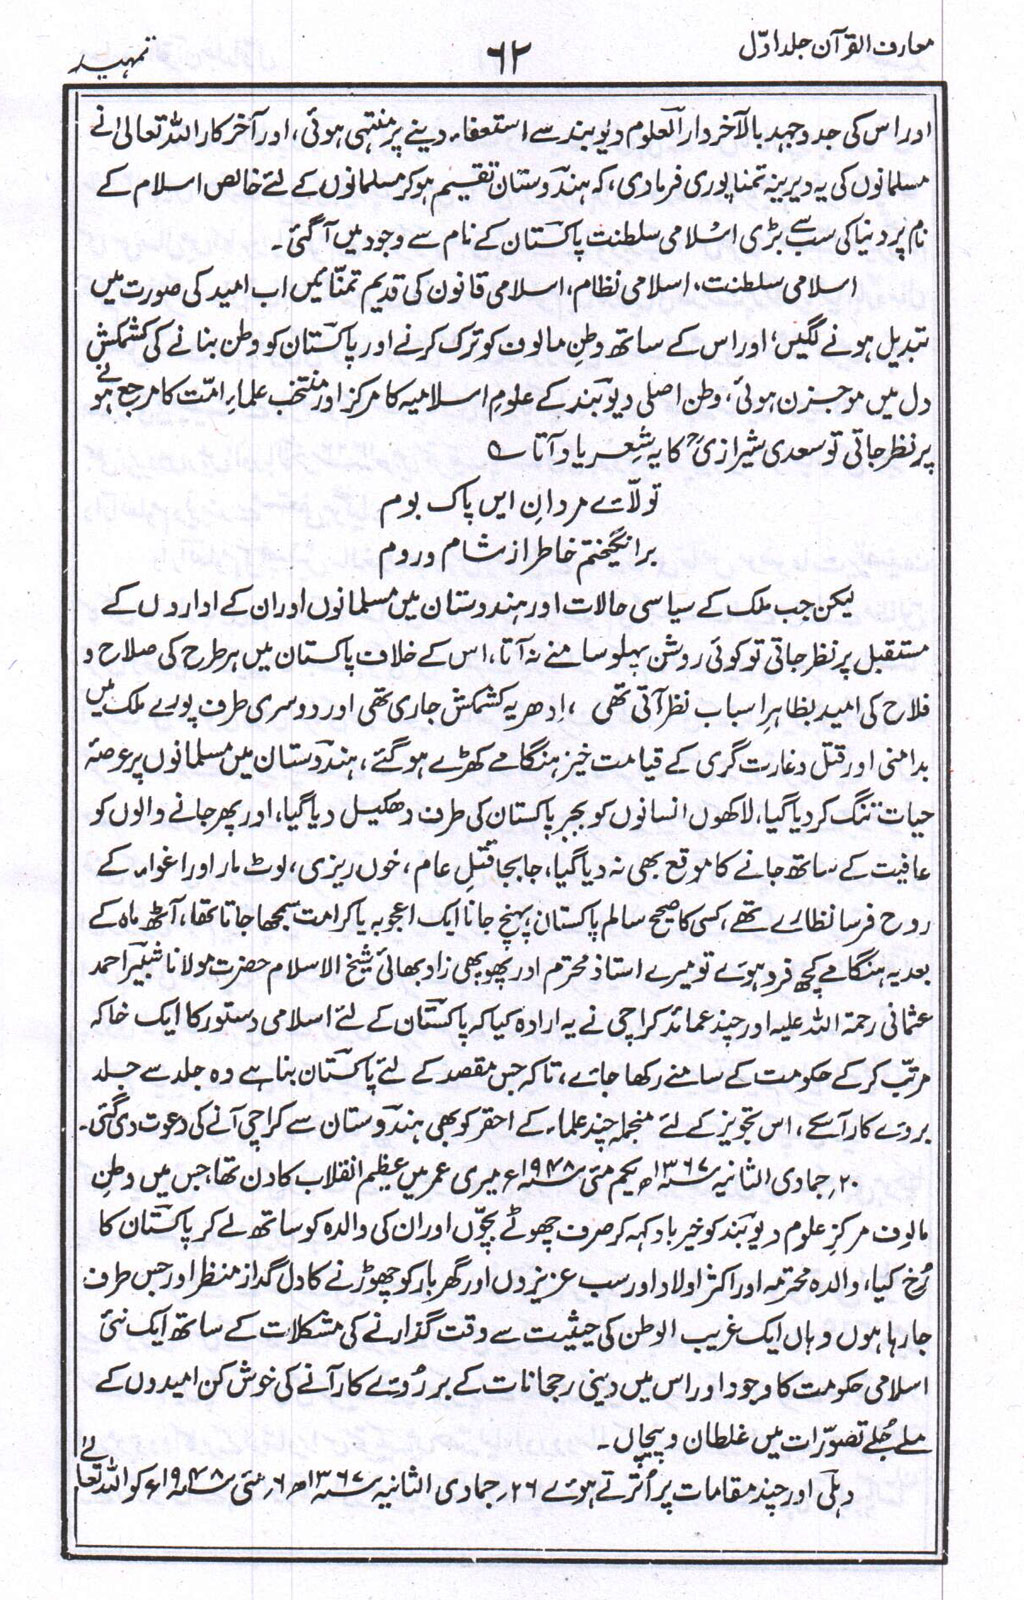 معارف القرآن جلد اوّل
۶۲
تمہید
اور اس کی جد و جہد بالآخر دار العلوم دیوبند سے استعفاء دینے پر منتہی ہوئی، اور آخر کار اللہ تعالیٰ نے
مسلمانوں کی یہ دیرینہ تمنا پوری فرمادی، کہ ہندوستان تقسیم ہو کر مسلمانوں کے لئے خالص اسلام کے
نام پر دنیا کی سب سے بڑی اسلامی سلطنت پاکستان کے نام سے وجود میں آگئی۔
اسلامی سلطنت، اسلامی نظام، اسلامی قانون کی قدیم تمنّائیں اب امید کی صورت میں
تبدیل ہونے لگیں، اور اس کے ساتھ وطنِ مالوف کو ترک کرنے اور پاکستان کو وطن بنانے کی کشمکش
دل میں موجزن ہوئی، وطن اصلی دیوبند کے علومِ اسلامیہ کا مرکز اور منتخب علماءِ امّت کا مرجع ہونے
پر نظر جاتی تو سعدی شیرازیؒ کا یہ شعر یاد آتا ؎
تولّائے مردانِ ایں پاک بوم
برانگیختم خاطر از شام و روم
لیکن جب ملک کے سیاسی حالات اور ہندوستان میں مسلمانوں اور ان کے اداروں کے
مستقبل پر نظر جاتی تو کوئی روشن پہلو سامنے نہ آتا، اس کے خلاف پاکستان میں ہر طرح کی صلاح و
فلاح کی امید بظاہرِ اسباب نظر آتی تھی ، اِدھر یہ کشمکش جاری تھی اور دوسری طرف پورے ملک میں
بدامنی اور قتل و غارت گری کے قیامت خیز ہنگامے کھڑے ہوگئے، ہندوستان میں مسلمانوں پر عرصۂ
حیات تنگ کر دیا گیا، لاکھوں انسانوں کو بجبر پاکستان کی طرف دھکیل دیا گیا، اور پھر جانے والوں کو
عافیت کے ساتھ جانے کا موقع بھی نہ دیا گیا، جابجا قتلِ عام، خوں ریزی، لوٹ مار اور اغواء کے
روح فرسا نظارے تھے، کسی کا صحیح سالم پاکستان پہنچ جانا ایک اعجوبہ یا کرامت سمجھا جاتا تھا، آٹھ ماہ کے
بعد یہ ہنگامے کچھ فرو ہوئے تو میرے استاذ محترم اور پھوپھی زاد بھائی شیخ الاسلام حضرت مولانا شبیر احمد
عثمانی رحمۃ اللہ علیہ اور چند عمائد کراچی نے یہ ارادہ کیا کہ پاکستان کے لئے اسلامی دستور کا ایک خاکہ
مرتّب کرکے حکومت کے سامنے رکھا جائے، تاکہ جس مقصد کے لئے پاکستان بنا ہے وہ جلد سے جلد
بروئے کار آسکے، اس تجویز کے لئے منجملہ چند علماء کے احقر کو بھی ہندوستان سے کراچی آنے کی دعوت دی گئی۔
۲۰؍جمادی الثانیہ ۱۳۶۷ھ یکم مئی ۱۹۴۸ء میری عمر میں عظیم انقلاب کا دن تھا، جس میں وطنِ
مالوف مرکزِ علوم دیوبند کو خیرباد کہہ کر صرف چھوٹے بچّوں اور ان کی والدہ کو ساتھ لے کر پاکستان کا
رُخ کیا، والدہ محترمہ اور اکثر اولاد اور سب عزیزوں اور گھر بار کو چھوڑنے کا دل گداز منظر اور جس طرف
جارہا ہوں وہاں ایک غریب الوطن کی حیثیت سے وقت گذارنے کی مشکلات کے ساتھ ایک نئی
اسلامی حکومت کا وجود اور اس میں دینی رجحانات کے برروئے کار آنے کی خوش کن امیدوں کے
ملے جُلے تصوّرات میں غلطان و پیچاں۔
دہلی اور چند مقامات پر اُترتے ہوئے ۲۶؍جمادی الثانیہ ۱۳۶۷ھ ۶؍مئی ۱۹۴۸ء کو اللہ تعالےٰ